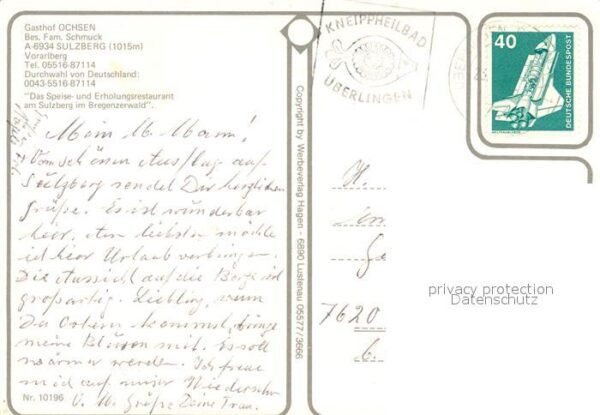 Gasthof OCHSEN
Bes. Fam. Schmuck
A-6934 SULZBERG (1015m)
Vorarlberg
Tel. 05516·87114
Durchwahl von Deutschland:
0043-5516·87114
"Das Speise- und Erholungsrestaurant
am Sulzberg im Bregenzerwald".
Mein
Vom schönen Ausflug auf
Sulzberg sendet Dir herzliche
Grüße. Es ist wunderbar
hier. Am liebsten möchte
ich hier Urlaub verbringen.
Die Aussicht auf die Berge ist
großartig. Liebling, wenn
Du Ostern kommst, bringe
meine Blusen mit. Es soll
wärmer werden. Ich freue
mich auf unser Wiedersehn
Grüße Deine Frau.
Nr. 10196
Copyright by Werbeverlag Hagen - 6890 Lustenau 05577/3666
KNEIPPHEILBAD
ÜBERLINGEN
40
DEUTSCHE BUNDESPOST
7620
privacy protection
Datenschutz